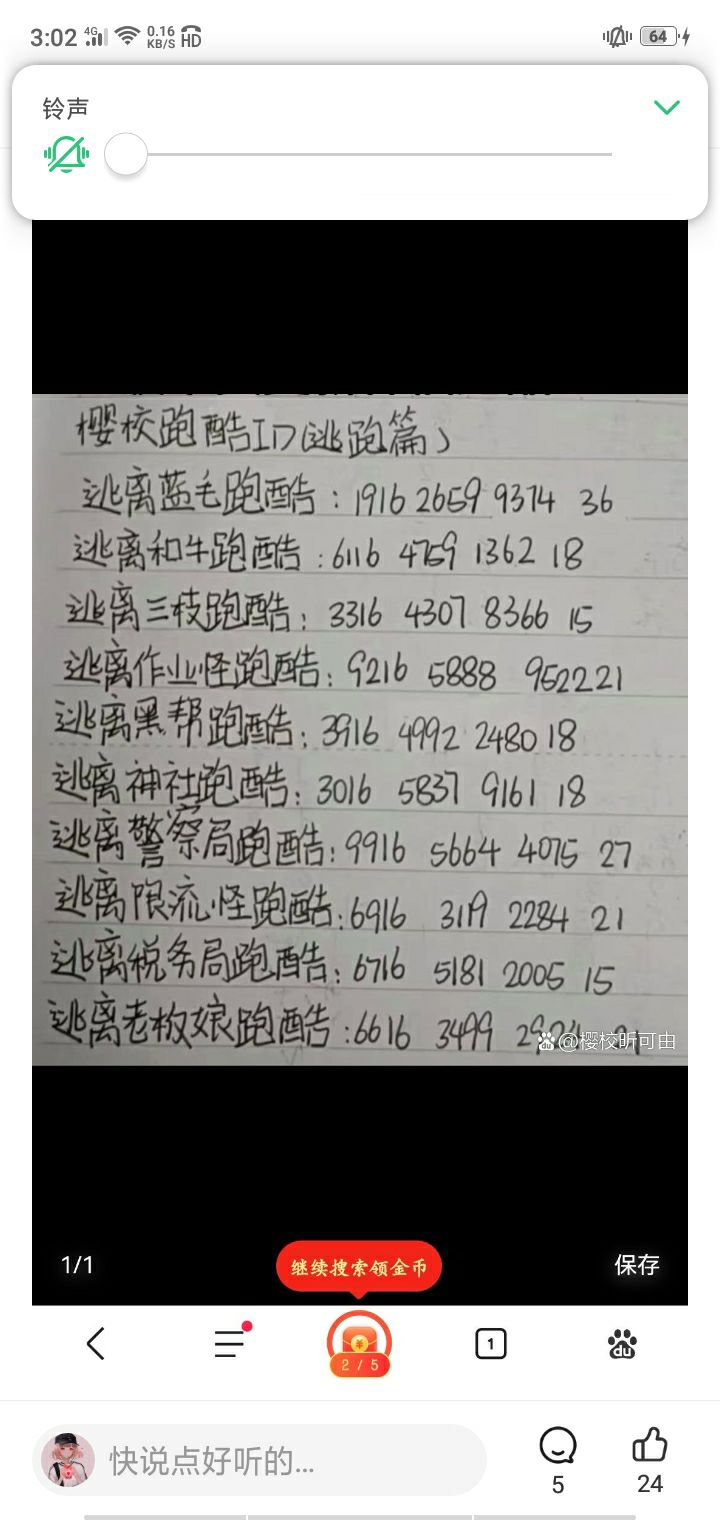 3:02 4G 0.16 KB/S HD 64
铃声
樱校跑酷ID(逃跑篇)
逃离蓝毛跑酷:1916 2659 9374 36
逃离和牛跑酷:6116 4759 1362 18
逃离三枝跑酷:3316 4307 8366 15
逃离作业怪跑酷:9216 5888 952221
逃离黑帮跑酷:3916 4992 2480 18
逃离神社跑酷:3016 5837 9161 18
逃离警察局跑酷:9916 5664 4075 27
逃离限流怪跑酷:6916 3119 2284 21
逃离税务局跑酷:6716 5181 2005 15
逃离老板娘跑酷:6616 3499
du @樱校昕可由
1/1
继续搜索领金币
保存
2/5
1
du
快说点好听的...
5
24